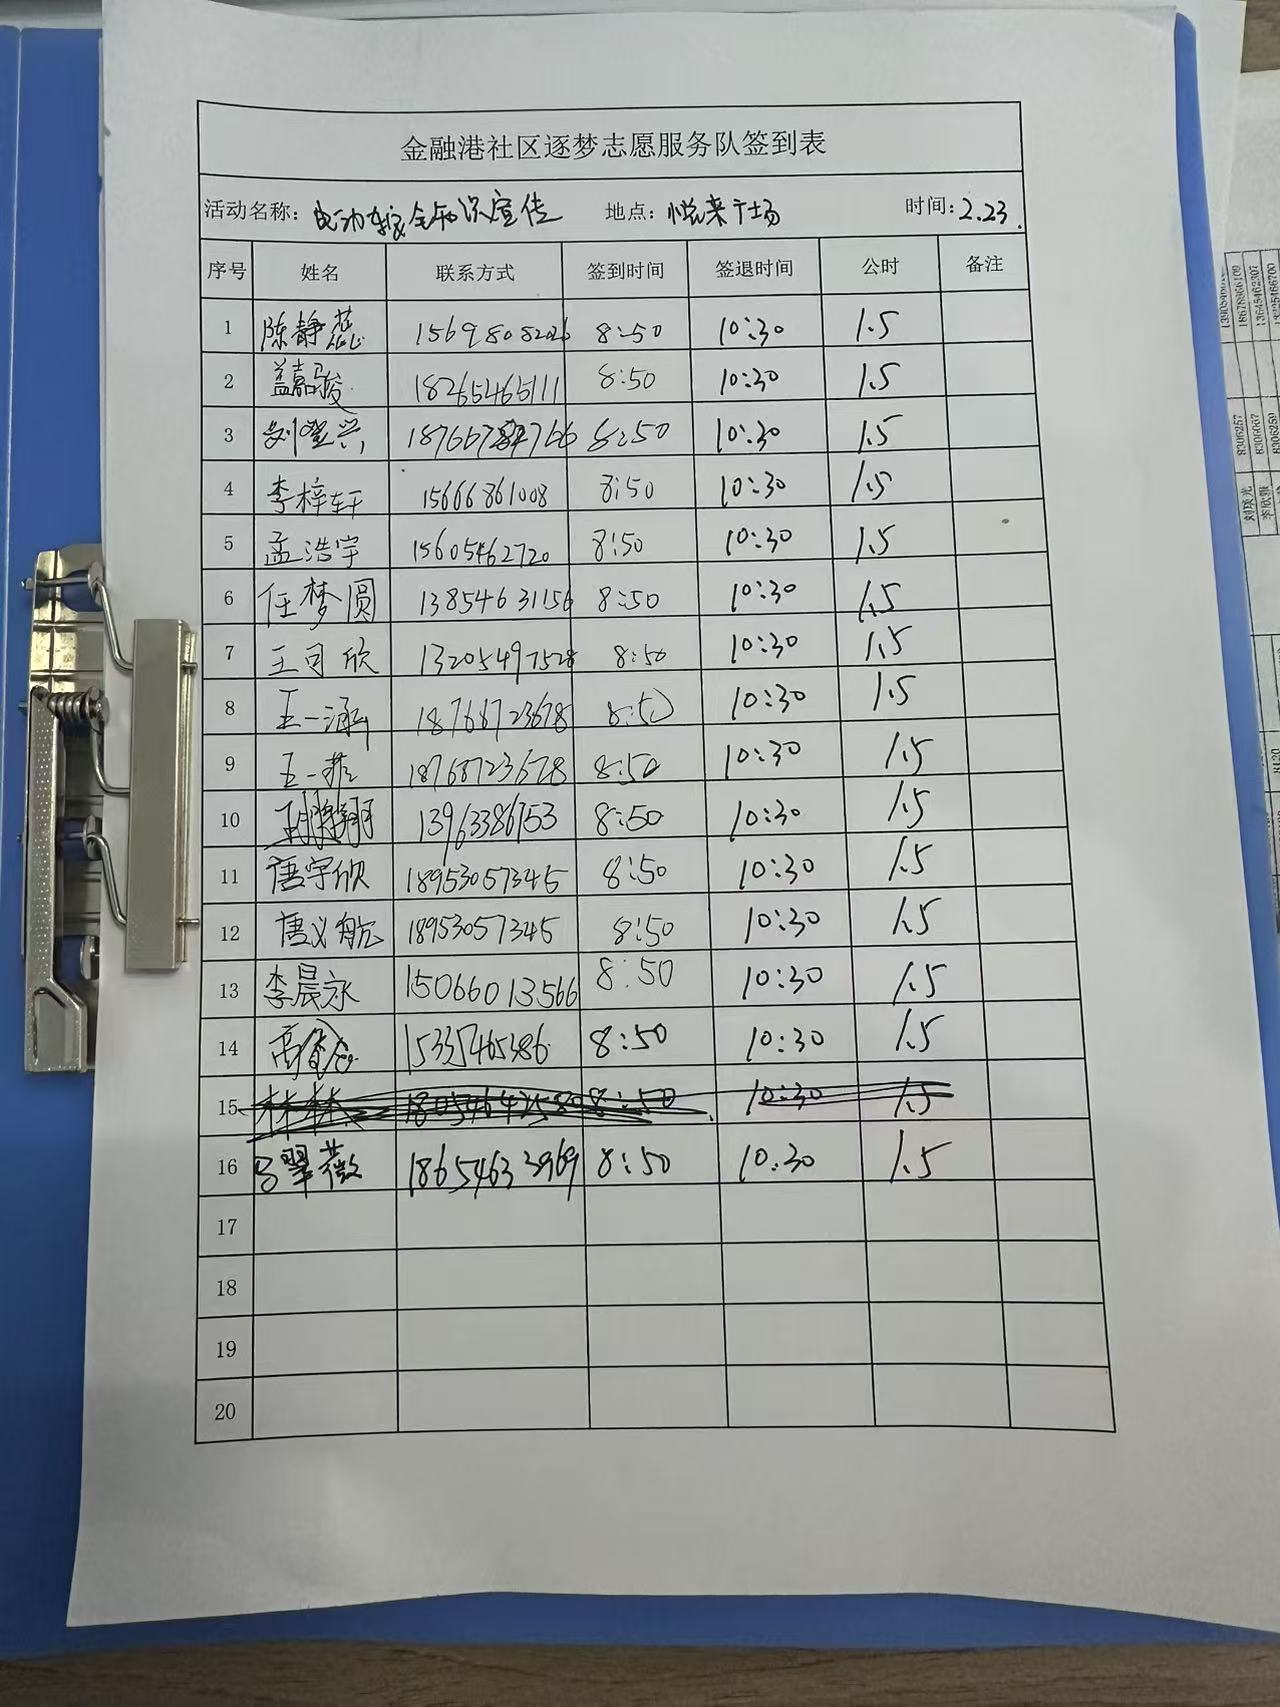 金融港社区逐梦志愿服务队签到表
活动名称: 电动车安全知识宣传 地点: 悦来广场 时间: 2.23.
序号 姓名 联系方式 签到时间 签退时间 公时 备注
1 陈静蕊 15698082026 8:50 10:30 1.5
2 盖嘉骏 18265465111 8:50 10:30 1.5
3 8:50 10:30 1.5
4 李梓轩 15666861008 8:50 10:30 1.5
5 孟浩宇 15605462720 8:50 10:30 1.5
6 任梦圆 13854631156 8:50 10:30 1.5
7 王司欣 13205497528 8:50 10:30 1.5
8 王一涵 18768723678 8:50 10:30 1.5
9 王一 18768723678 8:50 10:30 1.5
10 13963386753 8:50 10:30 1.5
11 唐宇欣 18953057345 8:50 10:30 1.5
12 唐义航 18953057345 8:50 10:30 1.5
13 李晨永 15066013566 8:50 10:30 1.5
14 高 15357465386 8:50 10:30 1.5
15 8:50 10:30 1.5
16 吕翠薇 18654633969 8:50 10:30 1.5
17
18
19
20